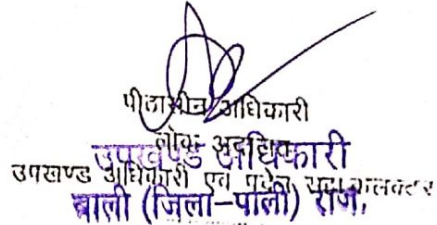 पीठासीन अधिकारी
लोक अदालत
उपखण्ड अधिकारी
उपखण्ड अधिकारी एवं पदेन
बाली (जिला-पाली) राज.